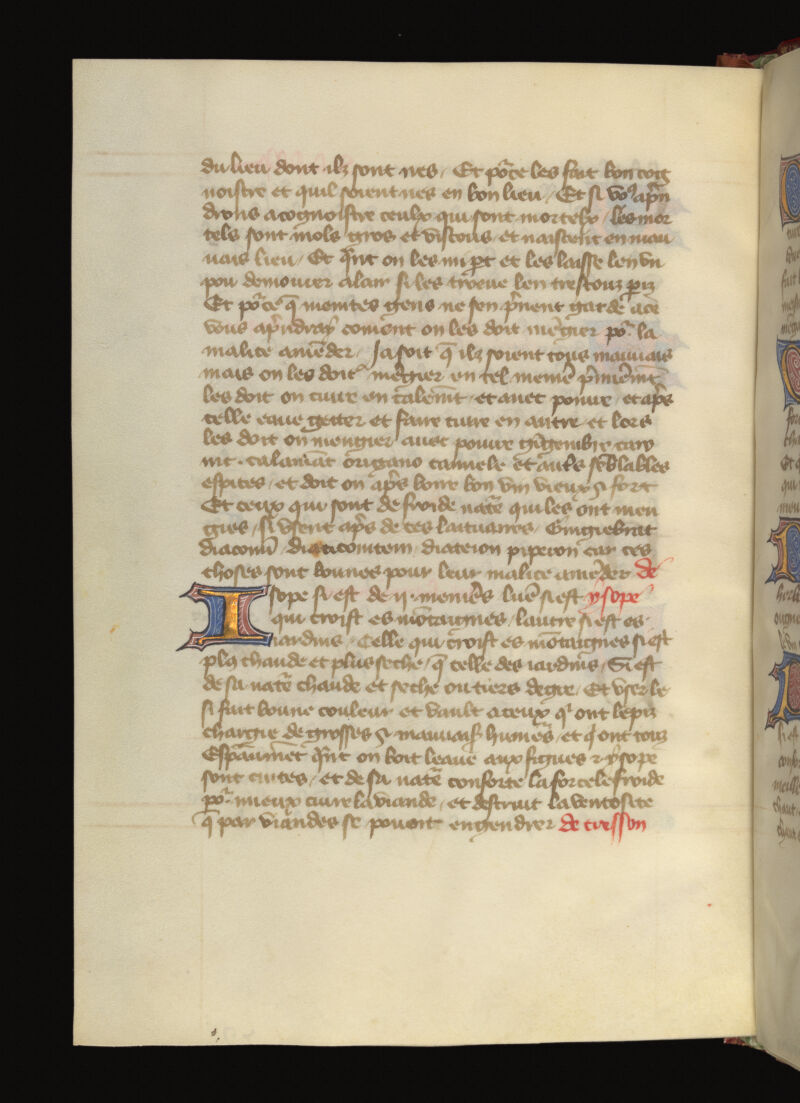 du lieu dont ilz sont nes / Et põce les fait bon cog
noistre et quil soient nes en bon lieu / Et si voꝰ apñ
drons a cognoistre ceulx qui sont mortelx / les mor
tels sont mols gros et viscous / et naissent en mau
uais lieu / Et qñt on les mi pͣt et les laisse len vn
pou demourer a lair si les treuue len trestouz
Et põce q̃ maintes gens ne sen p̃nent garde a ce
vous apñdray coment on les doit mẽgier poͬ la
malice amẽder / Ja soit q̃ ilz soient tous mauuais
mais on les doit mẽgier en tel meniẽ p̃mierem̃t
les doit on cuire en et auec poiure / et ap̃s
celle eaue getter et faire cuire en autre / et lors
les doit on mengier auec poiure gĩgembre car
ui . calamẽt origano cannele et auẽs sẽblables
espices / et doit on ap̃s boire bon vin vieux ⁊ fort
Et ceux qui sont de froide natẽ qui les ont men
gies / si vsent ap̃s de ces laituaires / Gingiebrat
diacomĩ diaticomitem diateion piperon car ces
choses sont bonnes pour leur malice amẽder de
Isope si est de ij . menieres lune si est ysope
qui croist es mõtaignes / lautre si est es
iardins / Celle qui croist es mõtaignes si est
plꝰ chaude et plus seche / q̃ celle des iardins / Si est
de sa natẽ chaude et seche ou tiers degre / Et vser le
si fait bonne couleur et vault a ceux qͥ ont le piz
chargie de grosses ⁊ mauuaises humeͬs / et q̃ ont touz
Espãument qñt on boit leaue aux figues ⁊ ysope
sont cuites / et de sa natẽ conforte la forcele froide
poͬ mieux cuire la viande / et destruit la ventosite
q̃ par viandes se pouoit engendrer de cresson